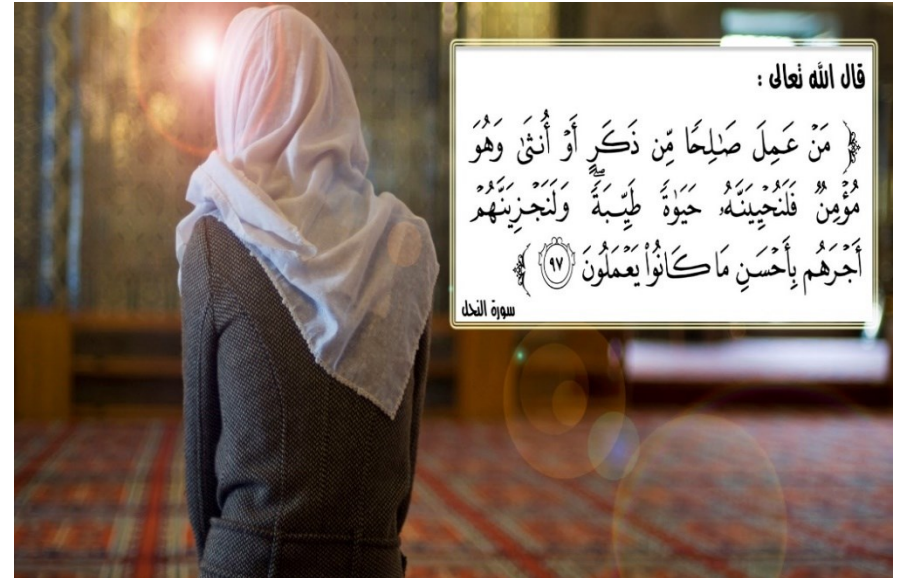 قال الله تعالى :
﴿ مَنْ عَمِلَ صَٰلِحًا مِّن ذَكَرٍ أَوْ أُنثَىٰ وَهُوَ
مُؤْمِنٌ فَلَنُحْيِيَنَّهُۥ حَيَوٰةً طَيِّبَةً ۖ وَلَنَجْزِيَنَّهُمْ
أَجْرَهُم بِأَحْسَنِ مَا كَانُوا۟ يَعْمَلُونَ ٩٧ ﴾
سورة النحل